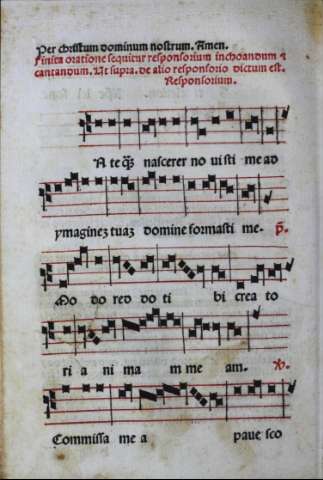 Per christum dominum nostrum. Amen.
Finita oratione sequitur responsorium inchoandum ⁊
cantandum. Ut supra. de alio responsorio dictum est.
Responsorium.
A te qȝ nascerer no ui sti me ad
ymaginez tuaz domine formasti me. p̃.
Mo do red do ti bi crea to
ri a ni ma m me am. ℣.
Commissa me a paue sco